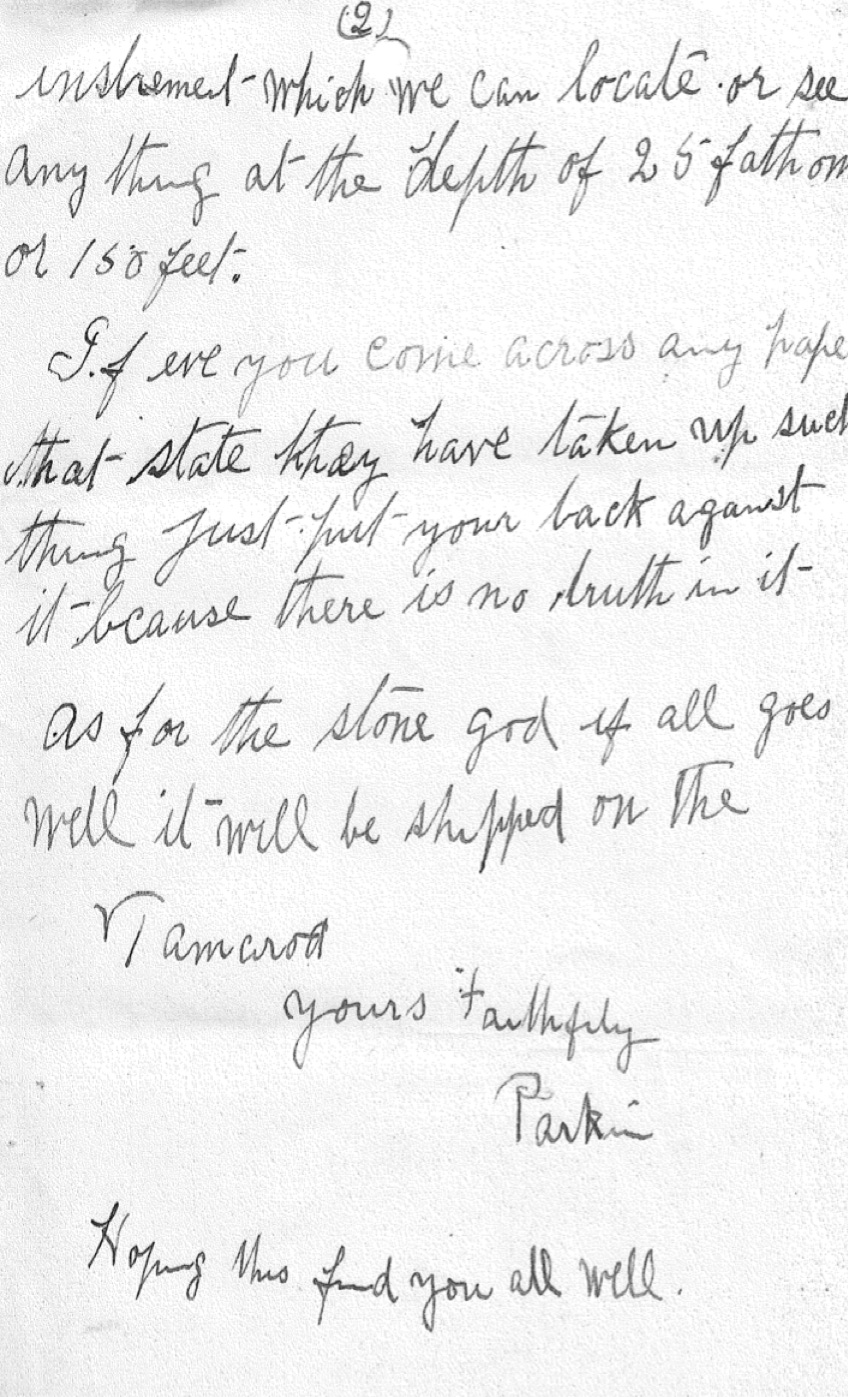 (2)
instrement which we can locate or see
any thing at the depth of 25 fathom
or 150 feet.
If eve you come across any pape
that state they have taken up such
thing just put your back aganst
it bcause there is no truth in it
as for the stone god if all goes
well it will be shipped on the
Tamarod
yours faithfily
Parkin
Hoping this find you all well.